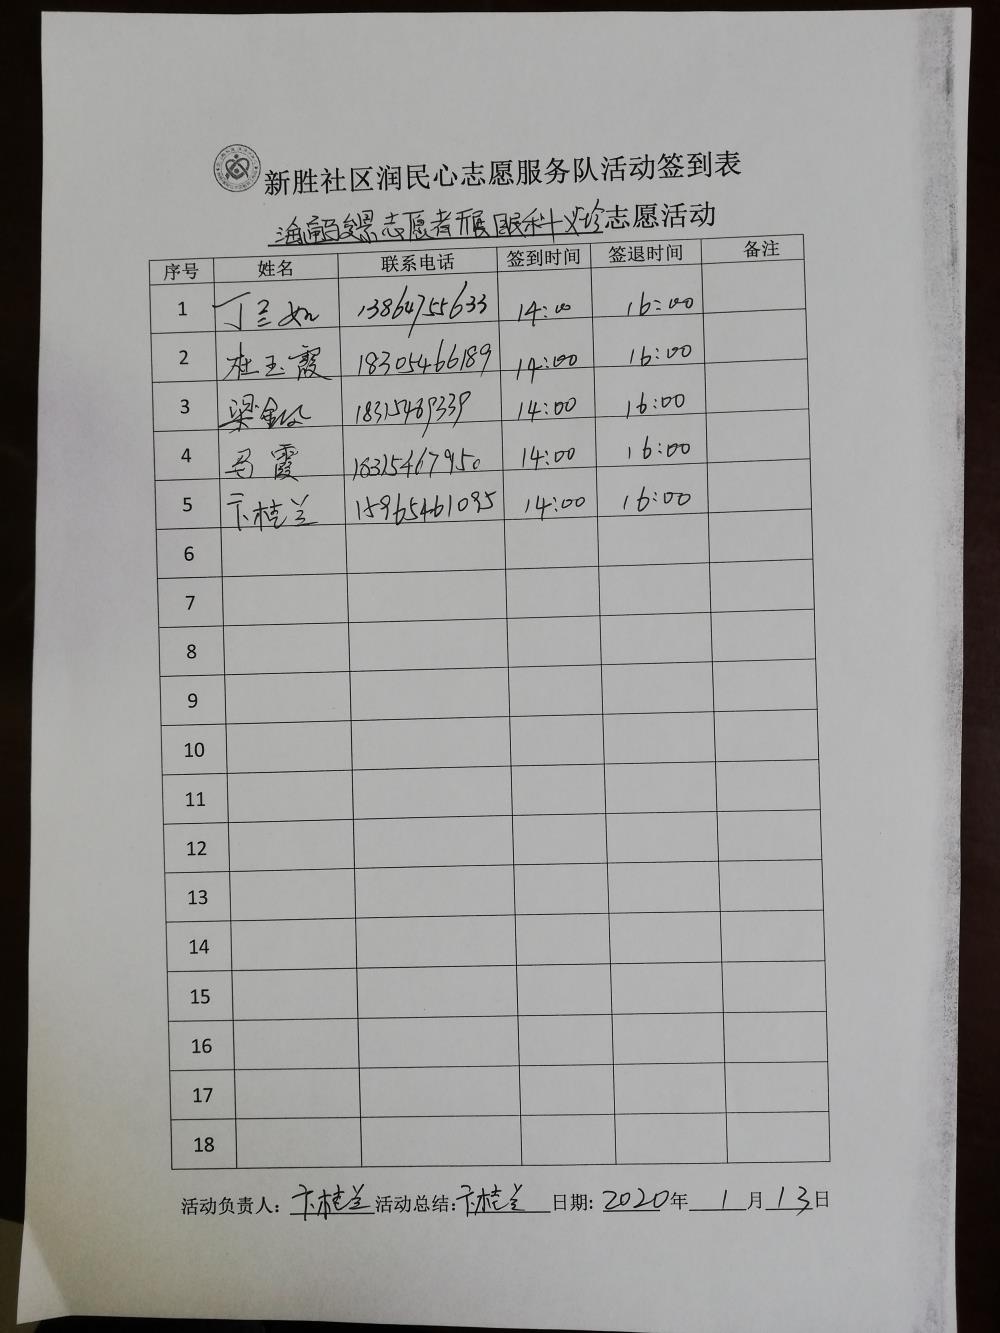 新胜社区润民心志愿服务队活动签到表
海通骏景志愿者开展眼科义诊志愿活动
序号 姓名 联系电话 签到时间 签退时间 备注
1 丁兰如 13864755633 14:00 16:00
2 杜玉霞 18305466189 14:00 16:00
3 梁 18315489339 14:00 16:00
4 马霞 18325467950 14:00 16:00
5 卞桂兰 15965461095 14:00 16:00
6
7
8
9
10
11
12
13
14
15
16
17
18
活动负责人: 卞桂兰 活动总结: 卞桂兰 日期: 2020年 1月13日